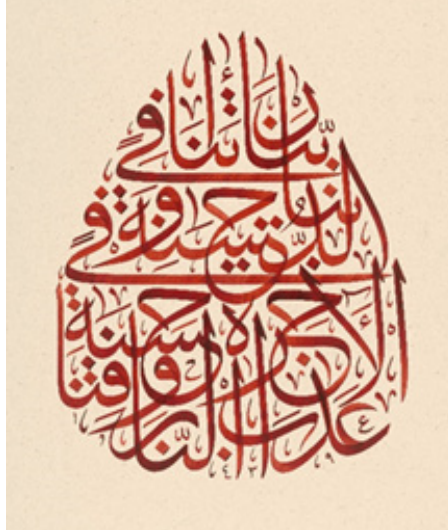 ربنا آتنا في
الدنيا حسنة وفي
الآخرة حسنة وقنا
عذاب النار